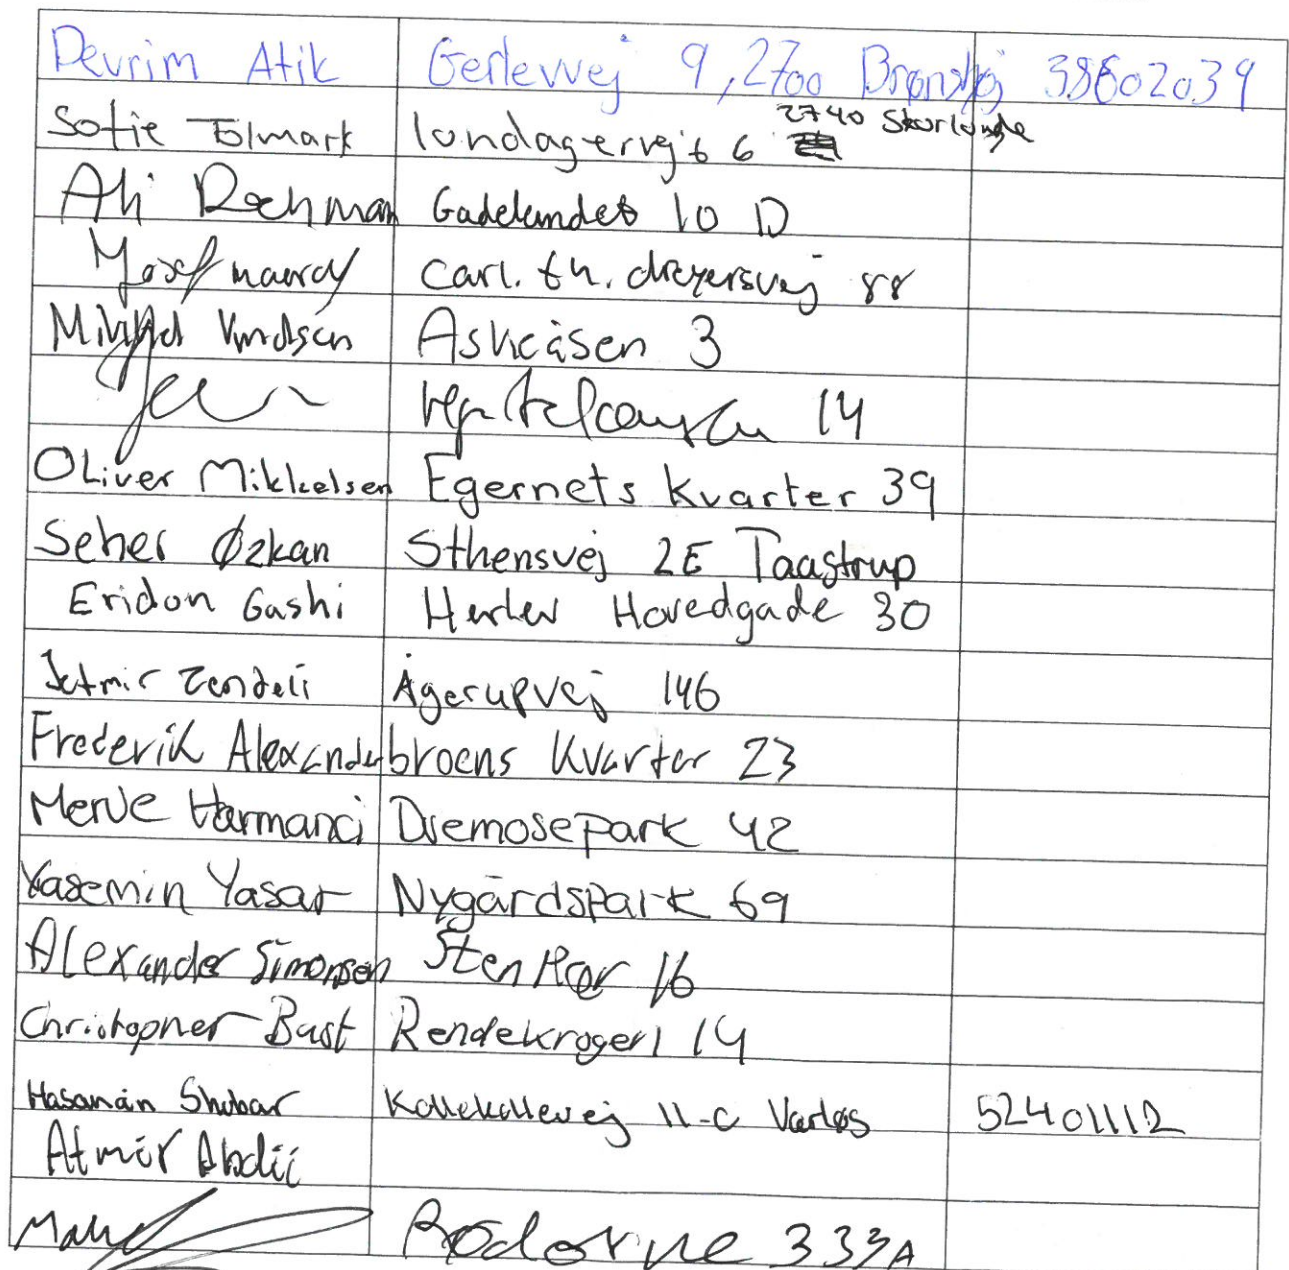 Devrim Atik Gerlevvej 9, 2700 Brønshøj 38602039
Sofie Tolmark lundagervej 6 2740 Skovlunde
Ali Rechman Gadelandet 10 D
Carl. th. dreyersvej 88
Askeåsen 3
14
OLiver Mikkelsen Egernets Kvarter 39
Seher Øzkan Sthensvej 2E Taastrup
Eridon Gashi Herlev Hovedgade 30
Jetmir Zendeli Ågerupvej 146
Frederik Alexander broens Kvarter 23
Merve Harmanci 42
Yasemin Yasar Nygårdspark 69
Alexander Simonsen 16
Christopher Bast 14
Hasanain Shubar Kollekollevej 11-C Værløs 52401112
Atmir Abdii
333A